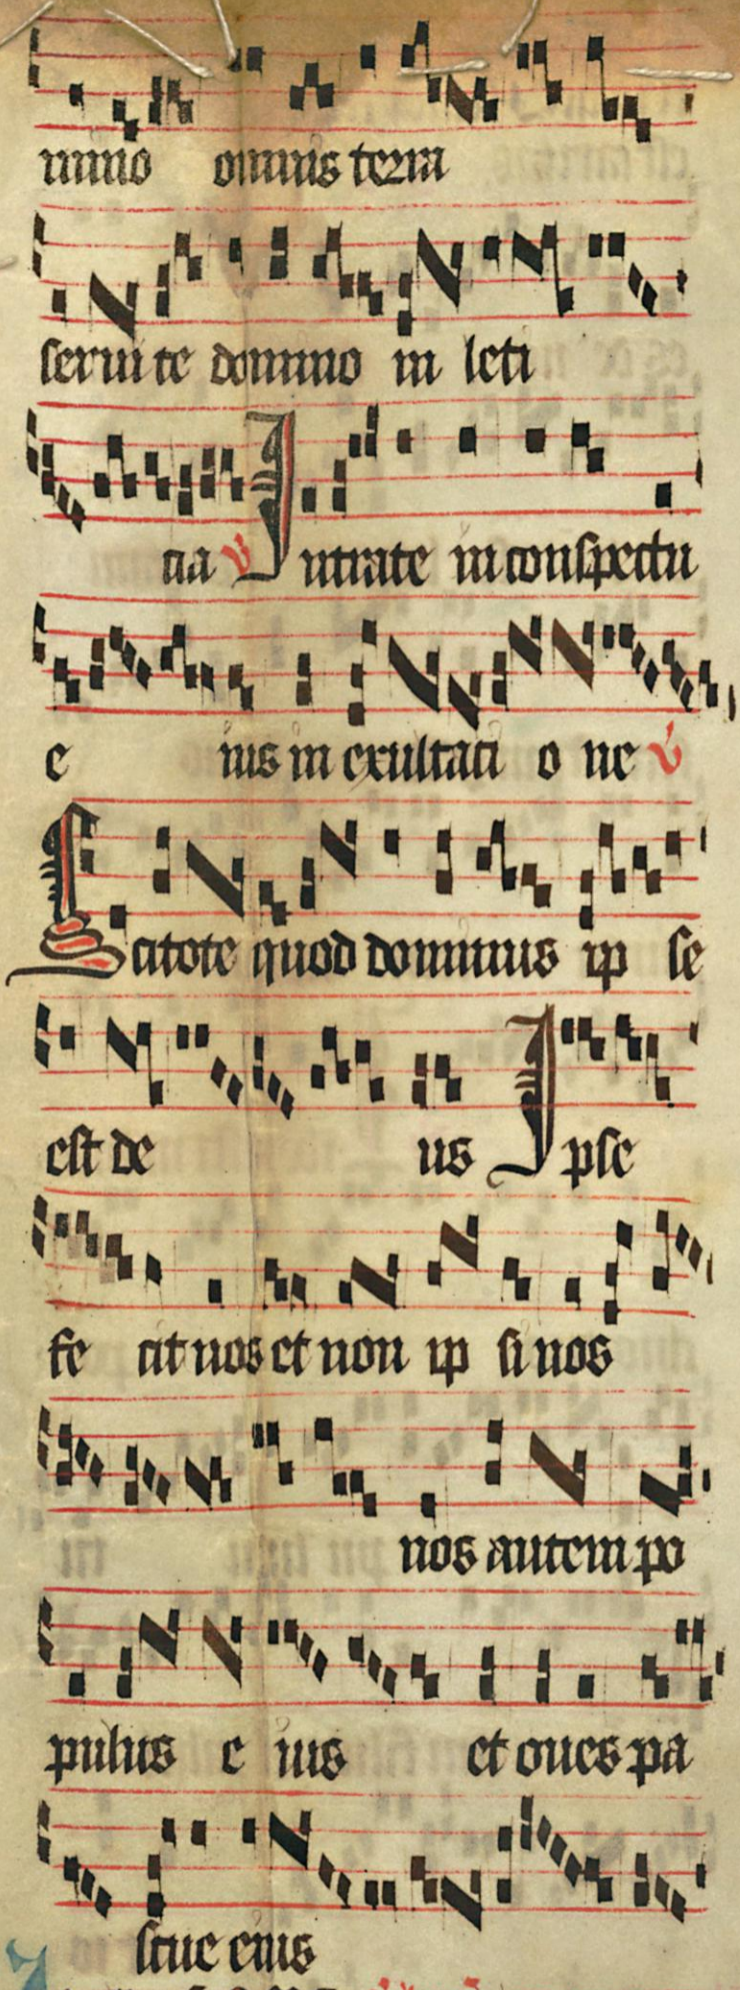 mino omnis terra
serui te domino in leti
cia ℣ Intrate in conspectu
e ius in exultati o ne ℣
Scitote quod dominus ip se
est de us Ipse
fe cit nos et non ip si nos
nos autem po
pulus e ius et oues pa
scue eius